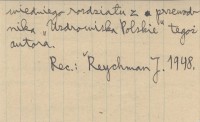 wiedniego rozdziału z przewod
nika „Uzdrowiska Polskie" tegoż
autora.
Rec.: Reychman J. 1948.